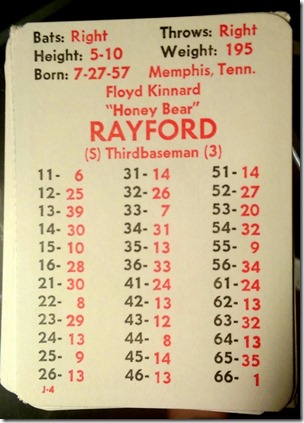 Bats: Right Throws: Right
Height: 5-10 Weight: 195
Born: 7-27-57 Memphis, Tenn.
Floyd Kinnard
"Honey Bear"
RAYFORD
(S) Thirdbaseman (3)
11- 6 31- 14 51- 14
12- 25 32- 26 52- 27
13- 39 33- 7 53- 20
14- 30 34- 31 54- 32
15- 10 35- 13 55- 9
16- 28 36- 33 56- 34
21- 30 41- 24 61- 24
22- 8 42- 13 62- 13
23- 29 43- 12 63- 32
24- 13 44- 8 64- 13
25- 9 45- 14 65- 35
26- 13 46- 13 66- 1
J-4